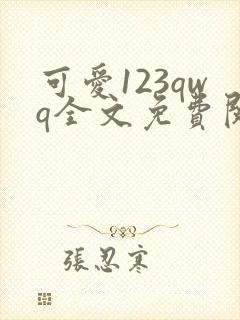 可愛123qw
q全文免費閱
張忍寒